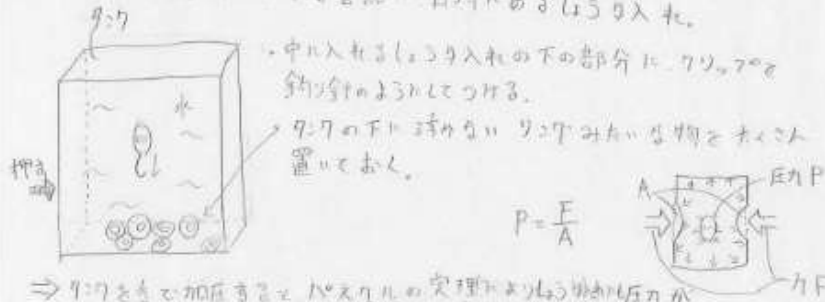 あるしょうゆ入れ。
タンク
・中に入れるしょうゆ入れの下の部分に、クリップを
釣り針のようにしてつける。
水
・タンクの下に浮かない リングみたいな物をたくさん
置いておく。
押す
P = F/A
A
圧力 P
力 F
⇒ タンクを手で加圧すると パスカルの定理によりしょうゆ 圧力が